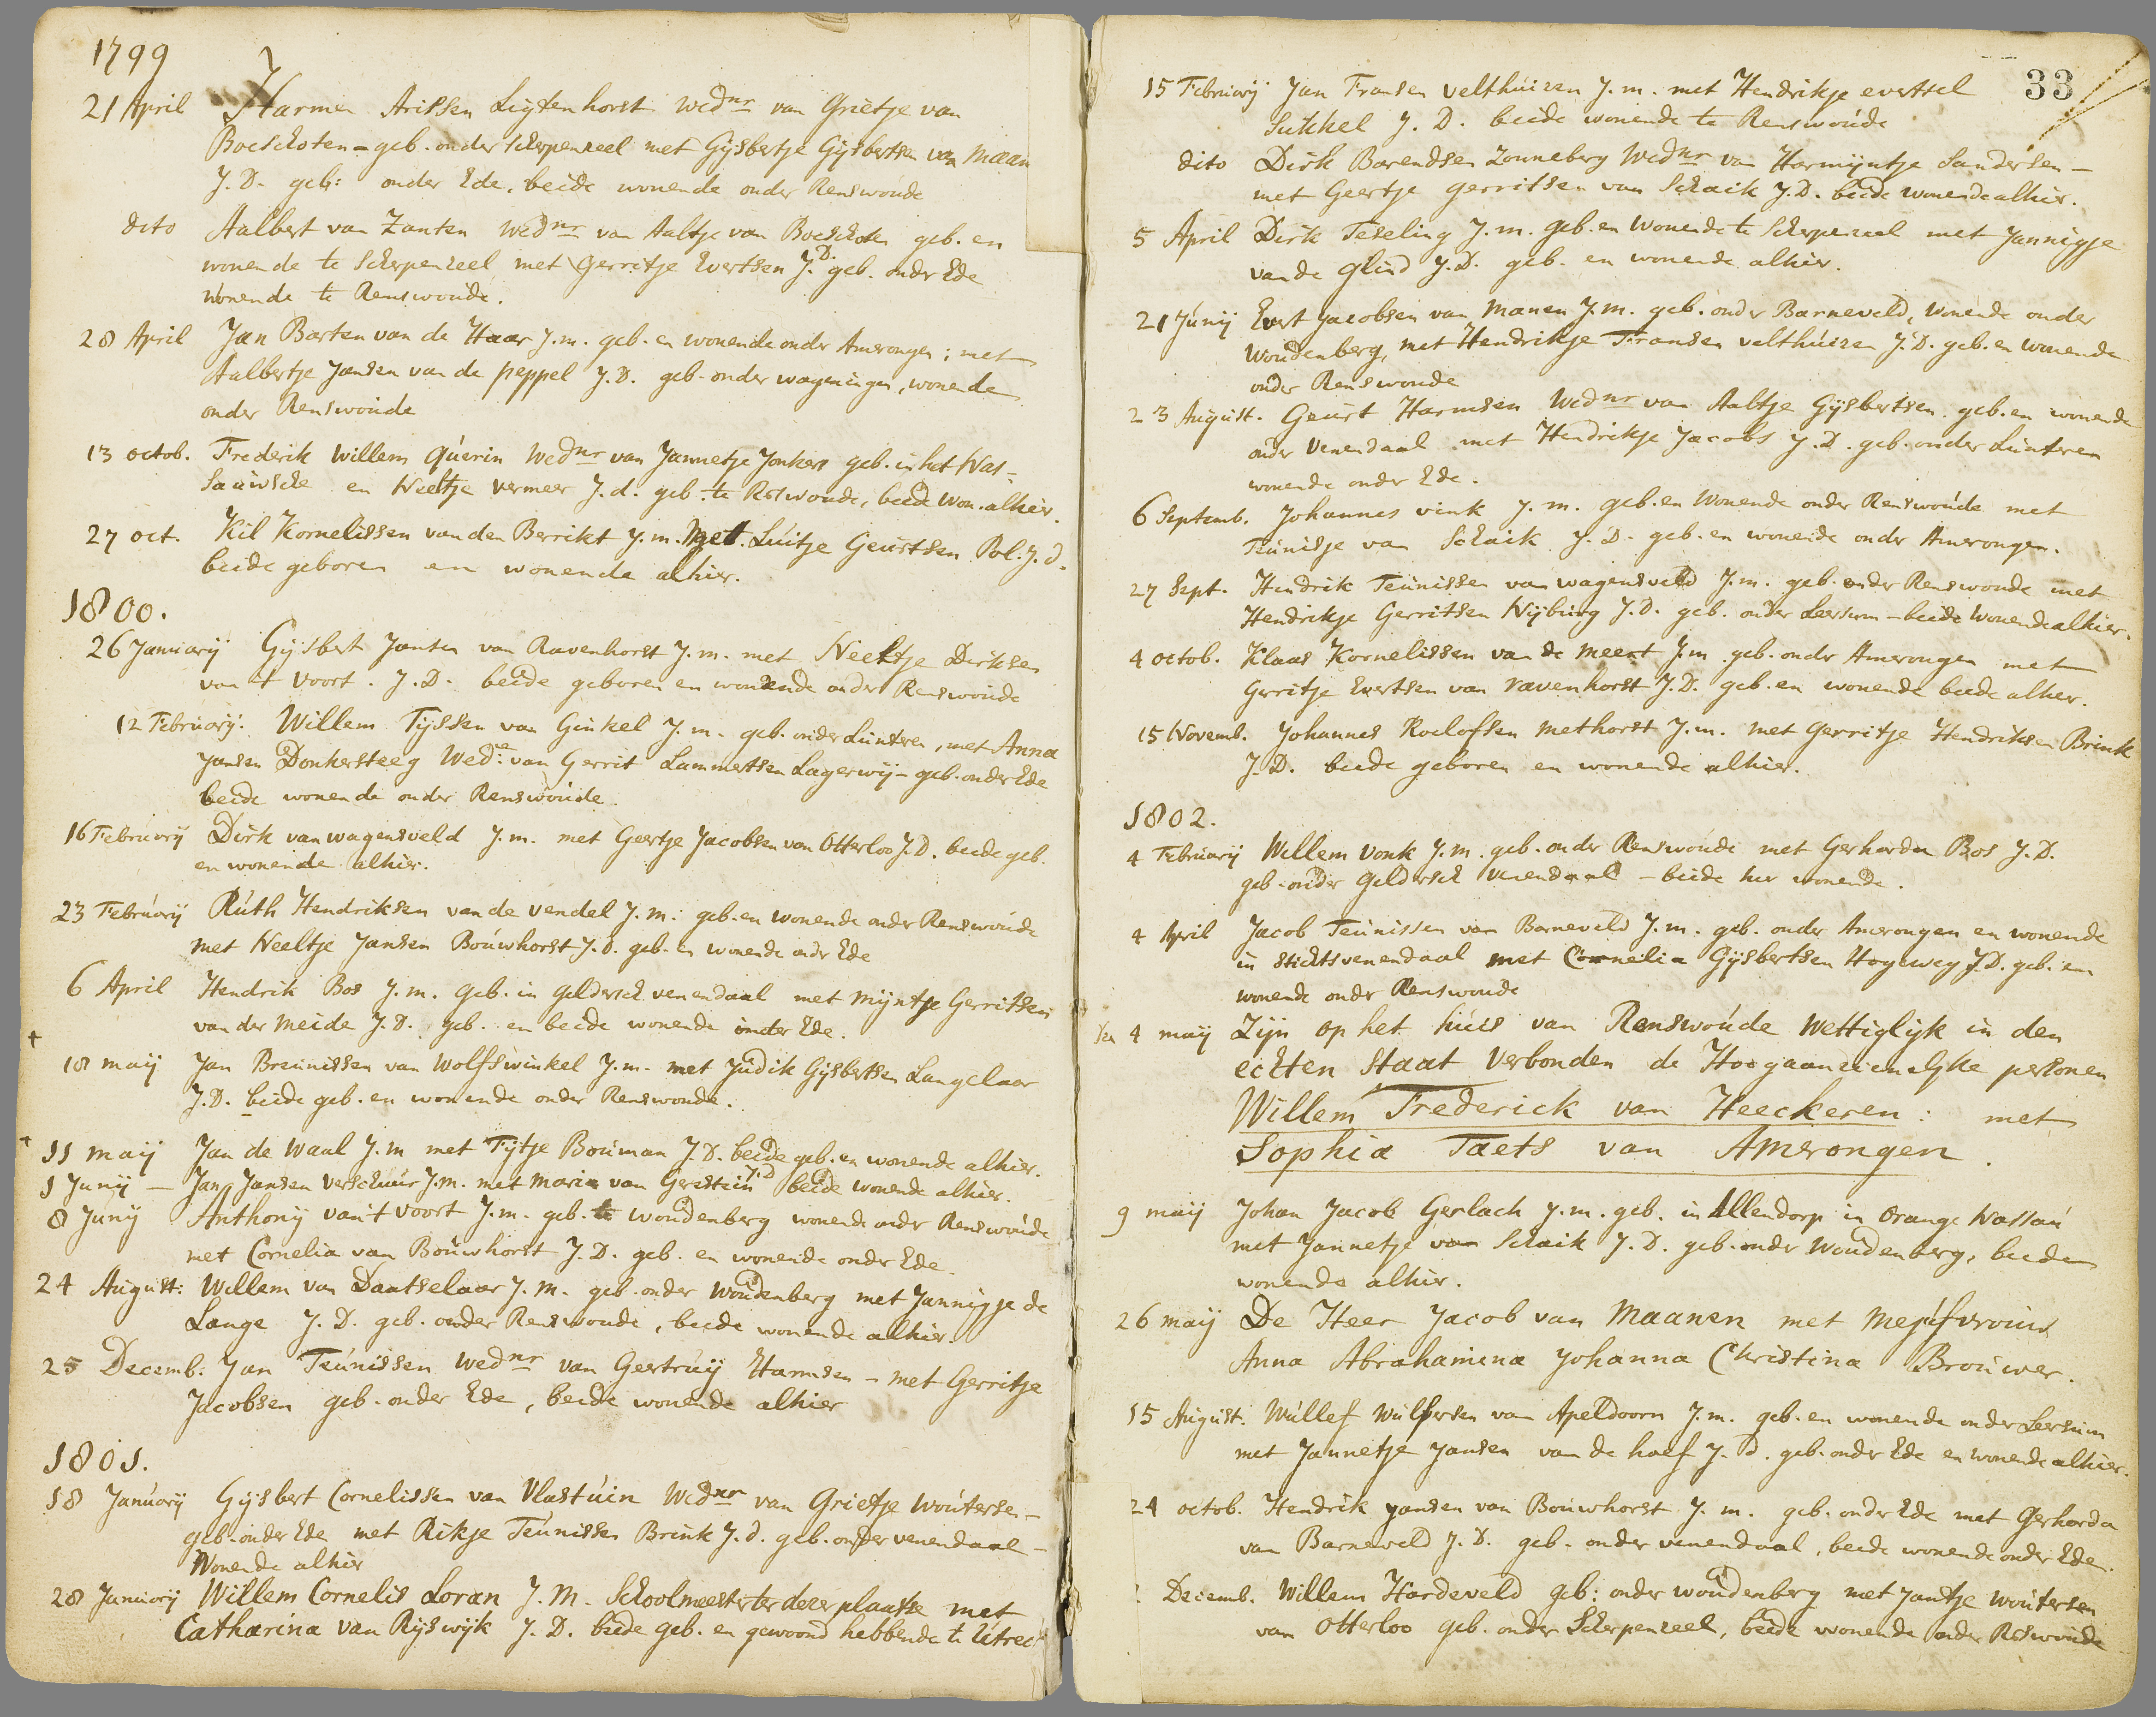 1799
21 April Harmen Arissen Ligtenhorst Wednr van Grietje van
Boeschoten - geb. onder scherpenzeel met Gijsbertje Gijsbertsen van Maan
J.D. geb: onder Ede. beide wonende onder Renswoude
dito Aalbert van Zanten Wednr van Aaltje van Boeschoten geb. en
wonende te Scherpenzeel met Gerritje Evertsen J.D. geb. onder Ede
wonende te Renswoude.
28 April Jan Barten van de Haar J.m. geb. en wonende onder Amerongen; met
Aalbertje Jansen van de peppel J.D. geb. onder wageningen, wonende
onder Renswoude
13 octob. Frederik Willem Querin Wednr van Jannetje Jonkers geb. in het Nas-
sauwsche en Neeltje Vermeer J.d. geb. te Rswoude, beide won. alhier.
27 oct. Kil Kornelissen van den Berrikt J.m. Met Luitje Geurtsen Pol. J.d.
beide geboren en wonende alhier.
1800.
26 Januarij Gijsbert Jansen van Ravenhorst J.m. met Neeltje Dirksen
van 't Voort. J.D. beide geboren en wonende onder Renswoude
12 Februarij. Willem Tijssen van Ginkel J.m. geb. onder Lunteren, met Anna
Jansen Donkersteeg Wede van Gerrit Lammertsen Lagerwij - geb. onder Ede
beide wonende onder Renswoude.
16 Februarij Dirk van wagensveld J.m. met Geertje Jacobsen van Otterloo J.D. beide geb.
en wonende alhier.
23 Februarij Ruth Hendriksen van de Vendel J.m. geb. en wonende onder Renswoude
met Neeltje Jansen Bouwhorst J.d. geb. en wonende ondr Ede
6 April Hendrik Bos J.m. geb. in geldersch venendaal met Mijntje Gerritsen
van der Meide J.D. geb. en beide wonende onder Ede.
18 maij Jan Breunissen van Wolfswinkel J.m. met Judik Gijsbertsen Langelaar
J.D. beide geb. en wonende onder Renswoude.
11 maij Jan de Waal J.m met Tijtje Bouman J.D. beide geb. en wonende alhier.
1 Junij - Jan Jansen Verschuur J.m. met Maria van Gerestein J.D beide wonende alhier.
8 Junij Anthonij van't Voort J.m. geb. te woudenberg wonende ondr Renswoude
met Cornelia van Bouwhorst J.D. geb. en wonende onder Ede.
24 August: Willem van Dantselaar J.m. geb. onder Woudenberg met Jannigje de
Lange J.D. geb. onder Renswoude, beide wonende alhier.
25 Decemb: Jan Teunissen Wednr van Gertruij Harmsen - met Gerritje
Jacobsen geb. onder Ede, beide wonende alhier
1801.
18 Januarij Gijsbert Cornelissen van Vlastuin Wednr van Grietje Woutersen -
geb. onder Ede met Rikje Teunissen Brink J.d. geb. onder venendaal -
Wonende alhier
28 Januarij Willem Cornelis Loran J.M. Schoolmeester ter deezer plaatse met
Catharina van Rijswijk J.D. beide geb. en gewoond hebbende te Utrech
33
15 Februarij Jan Fransen velthuizen J.m. met Hendrikje evertsel
Sukkel J.D. beide wonende te Renswoude
dito Dirk Barendsen Zonneberg Wednr van Harmijntje Sandersen -
met Geertje gerritsen van Schaik J.D. beide wonende alhier.
5 April Dirk Teseling J.m. geb. en Wonende te Scherpenzeel met Jannigje
van de Glind J.D. geb. en wonende alhier.
21 Junij Evert Jacobsen van Manen J.m. geb. onder Barneveld, wonende onder
Woudenberg, met Hendrikje Fransen velthuizen J.D. geb. en wonende
onder Renswoude
23 August. Geurt Harmsen Wednr van Aaltje Gijsbertsen geb. en wonende
onder Venendaal met Hendrikje Jacobs J.D. geb. onder Lunteren
wonende onder Ede.
6 Septemb. Johannes vink J.m. geb. en Wonende onder Renswoude met
Teunisje van Schaik J.D. geb. en wonende onder Amerongen.
27 Sept. Hendrik Teunissen van wagensveld J.m. geb. onder Renswoude met
Hendrikje Gerritsen Nijburg J.D. geb. onder Leersum - beide wonende alhier.
4 octob. Klaas Kornelissen van de Meent J.m geb. ondr Amerongen met
Gerritje Evertsen van Ravenhorst J.D. geb. en wonende beide alhier.
15 Novemb. Johannes Roelofsen Methorst J.m. met Gerritje Hendriksen Brink
J.D. beide geboren en wonende alhier.
1802.
4 Februarij Willem Vonk J.m. geb. onder Renswoude met Gerharda Bos J.D.
geb. onder Geldersch Venendaal - beide hier wonende.
4 April Jacob Teunissen van Barneveld J.m. geb. onder Amerongen en wonende
in Stichtsvenendaal met Cornelia Gijsbertsen Hogeweg J.D. geb. en
wonende ondr Renswoude
4 maij Zijn op het huis van Renswoude Wettiglijk in den
echten Staat Verbonden de Hoogaanzienelyke personen
Willem Frederick van Heeckeren: met
Sophia Taets van Amerongen.
9 maij Johan Jacob Gerlach J.m. geb. in Allendorp in Orange Nassau
met Jannetje van Schaik J.D. geb. ondr Woudenberg, beiden
wonende alhier.
26 maij De Heer Jacob van Maanen met Mejufvrouw
Anna Abrahamina Johanna Christina Brouwer.
15 August. Wullef Wulfersen van Apeldoorn J.m. geb. en wonende onder Leersum
met Jannetje Jansen van de hoef J.d. geb. ondr Ede en wonende alhier.
24 octob. Hendrik Jansen van Bouwhorst J.m. geb. ondr Ede met Gerharda
van Barneveld J.D. geb. onder venendaal, beide wonende onder Ede.
Decemb. Willem Hardeveld geb: onder woudenberg met Jantje Woutersen
van Otterloo geb. onder Scherpenzeel, beide wonende onder Rswoude